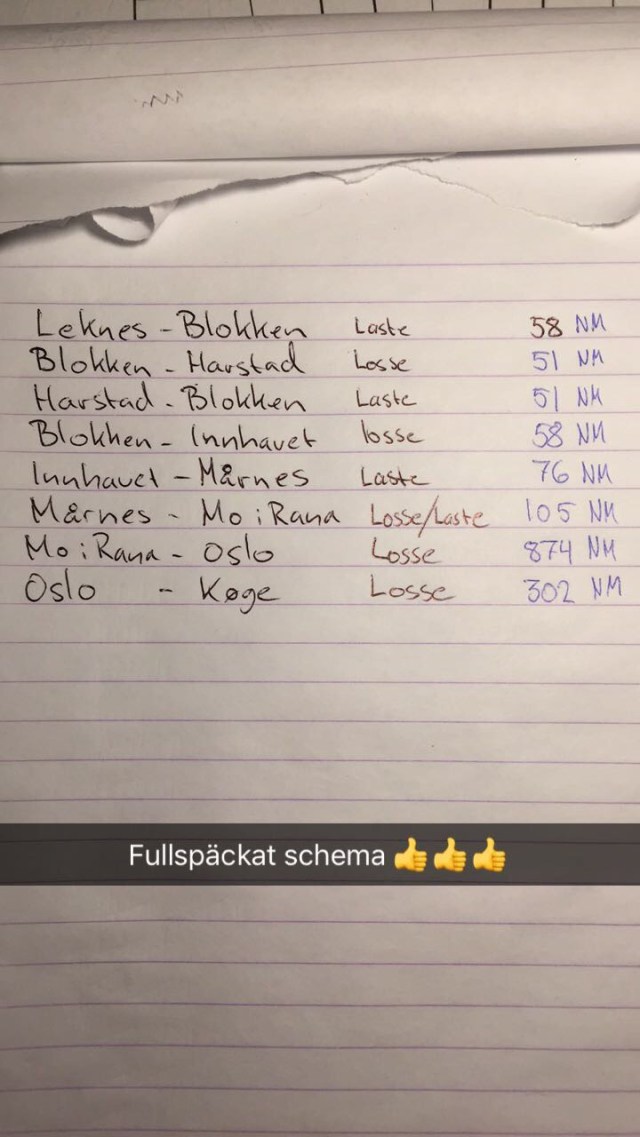 Leknes - Blokken Laste 58 NM
Blokken - Harstad Losse 51 NM
Harstad - Blokken Laste 51 NM
Blokken - Innhavet losse 58 NM
Innhavet - Mårnes Laste 76 NM
Mårnes - Mo i Rana Losse/Laste 105 NM
Mo i Rana - Oslo Losse 874 NM
Oslo - Køge Losse 302 NM
Fullspäckat schema 👍👍👍